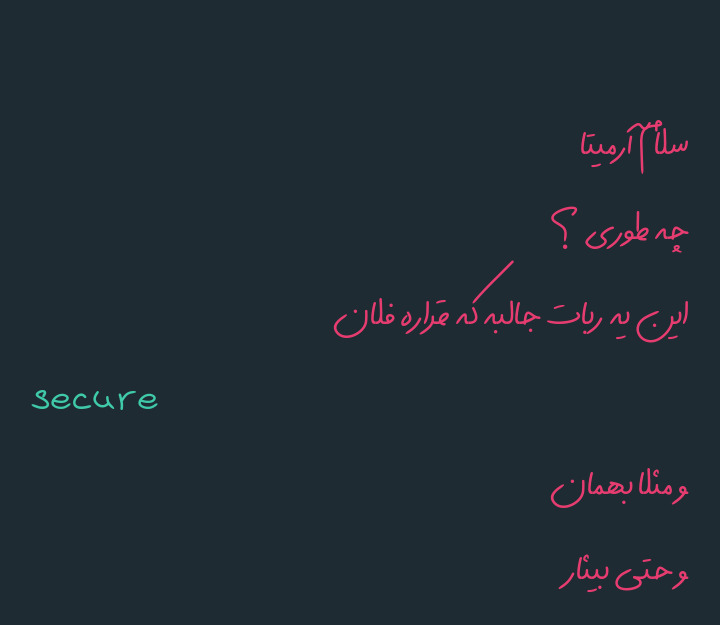 سلام آرمیتا
چه طوری ؟
این یه ربات جالبه که قراره فلان
secure
و مثلا بهمان
و حتی بیثار